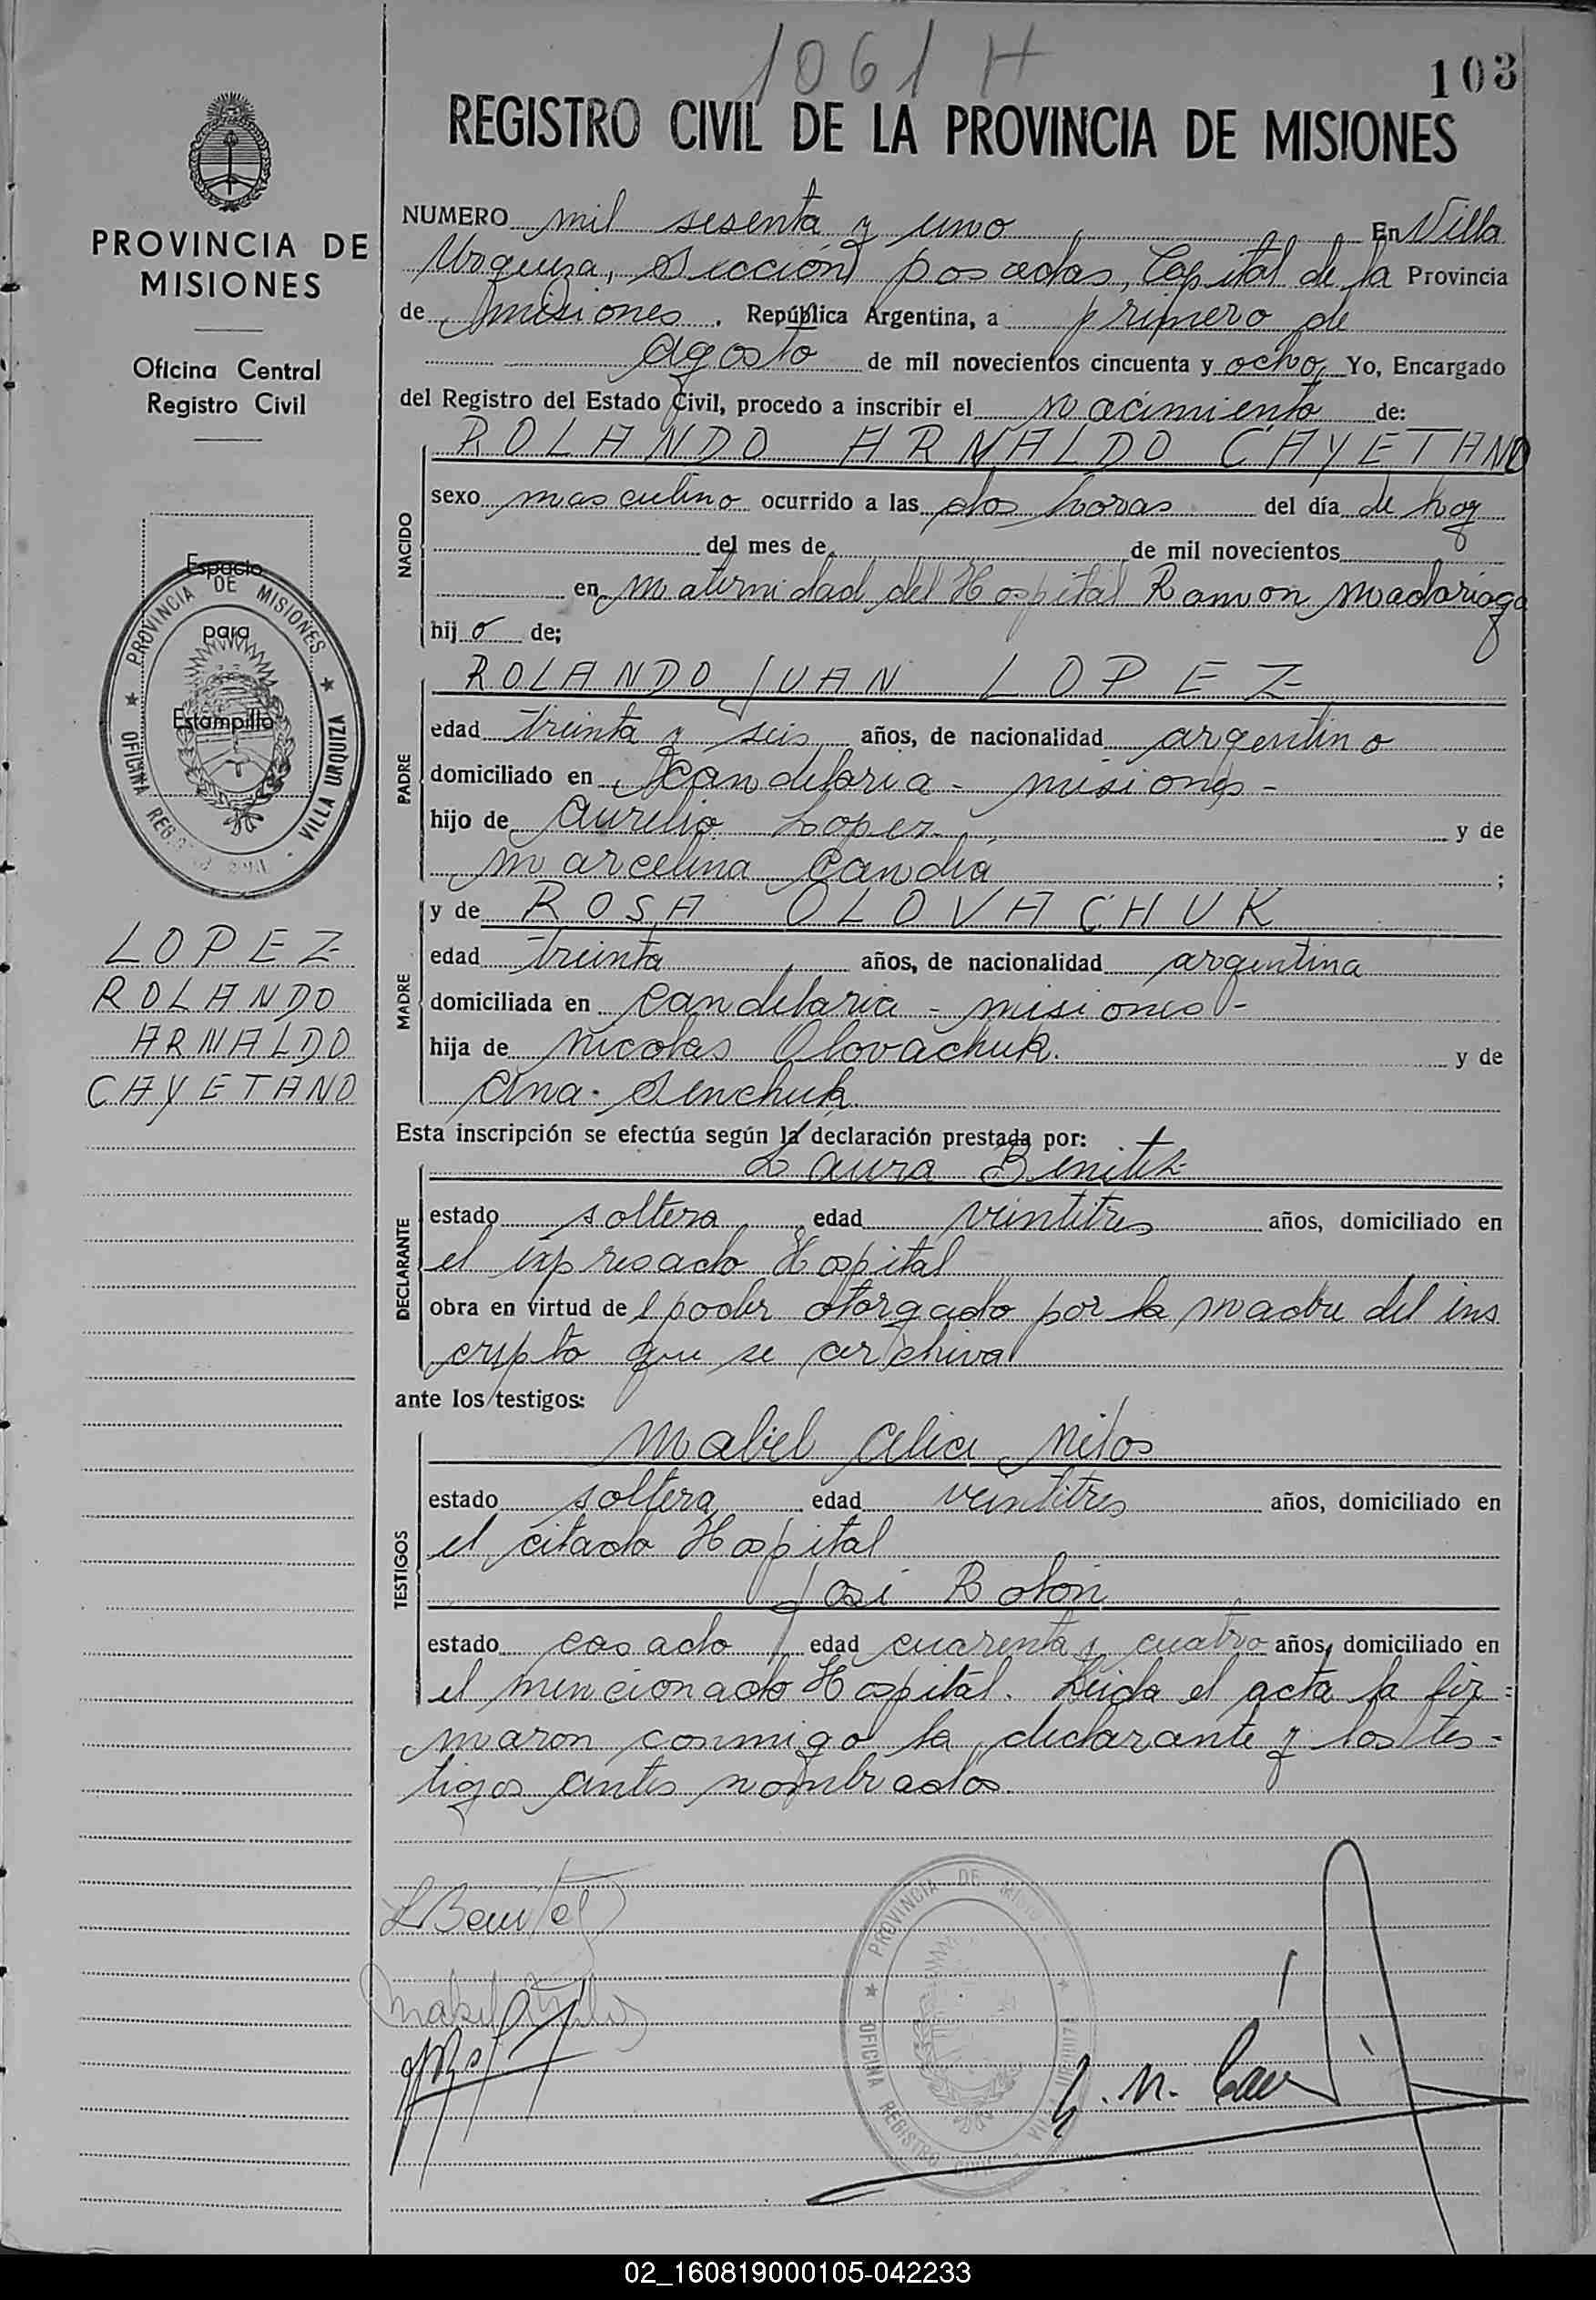 1061 H
103
REGISTRO CIVIL DE LA PROVINCIA DE MISIONES
PROVINCIA DE
MISIONES
Oficina Central
Registro Civil
Espacio
para
Estampilla
PROVINCIA DE MISIONES
OFICINA REG VILLA URQUIZA
LOPEZ
ROLANDO
ARNALDO
CAYETANO
NUMERO mil sesenta y uno En Villa
Urquiza, Sección posadas, Capital de la Provincia
de misiones. República Argentina, a primero de
Agosto de mil novecientos cincuenta y ocho, Yo, Encargado
del Registro del Estado Civil, procedo a inscribir el nacimiento de:
NACIDO
ROLANDO ARNALDO CAYETANO
sexo masculino ocurrido a las dos horas del día de hoy
del mes de de mil novecientos
en maternidad del Hospital Ramon madariaga
hijo de;
PADRE
ROLANDO JUAN LOPEZ
edad treinta y seis años, de nacionalidad argentino
domiciliado en Candelaria - misiones -
hijo de Aurelio Lopez y de
marcelina Candia ;
MADRE
y de ROSA OLOVACHUK
edad treinta años, de nacionalidad argentina
domiciliada en Candelaria - misiones -
hija de Nicolas Olovachuk. y de
Ana Senchuk
Esta inscripción se efectúa según la declaración prestada por:
DECLARANTE
Laura Benitez
estado soltera, edad veintitres años, domiciliado en
el expresado Hospital
obra en virtud del poder otorgado por la madre del ins
cripto que se archiva
ante los testigos:
TESTIGOS
Mabel Celia
estado soltera edad veintitres años, domiciliado en
el citado Hospital
José Bolón
estado casado edad cuarenta y cuatro años, domiciliado en
el mencionado Hospital. Leida el acta la fir=
maron conmigo la declarante y los tes-
tigos antes nombrados.
L Benitez
PROVINCIA DE
OFICINA REGISTRO CIVIL
02_160819000105-042233